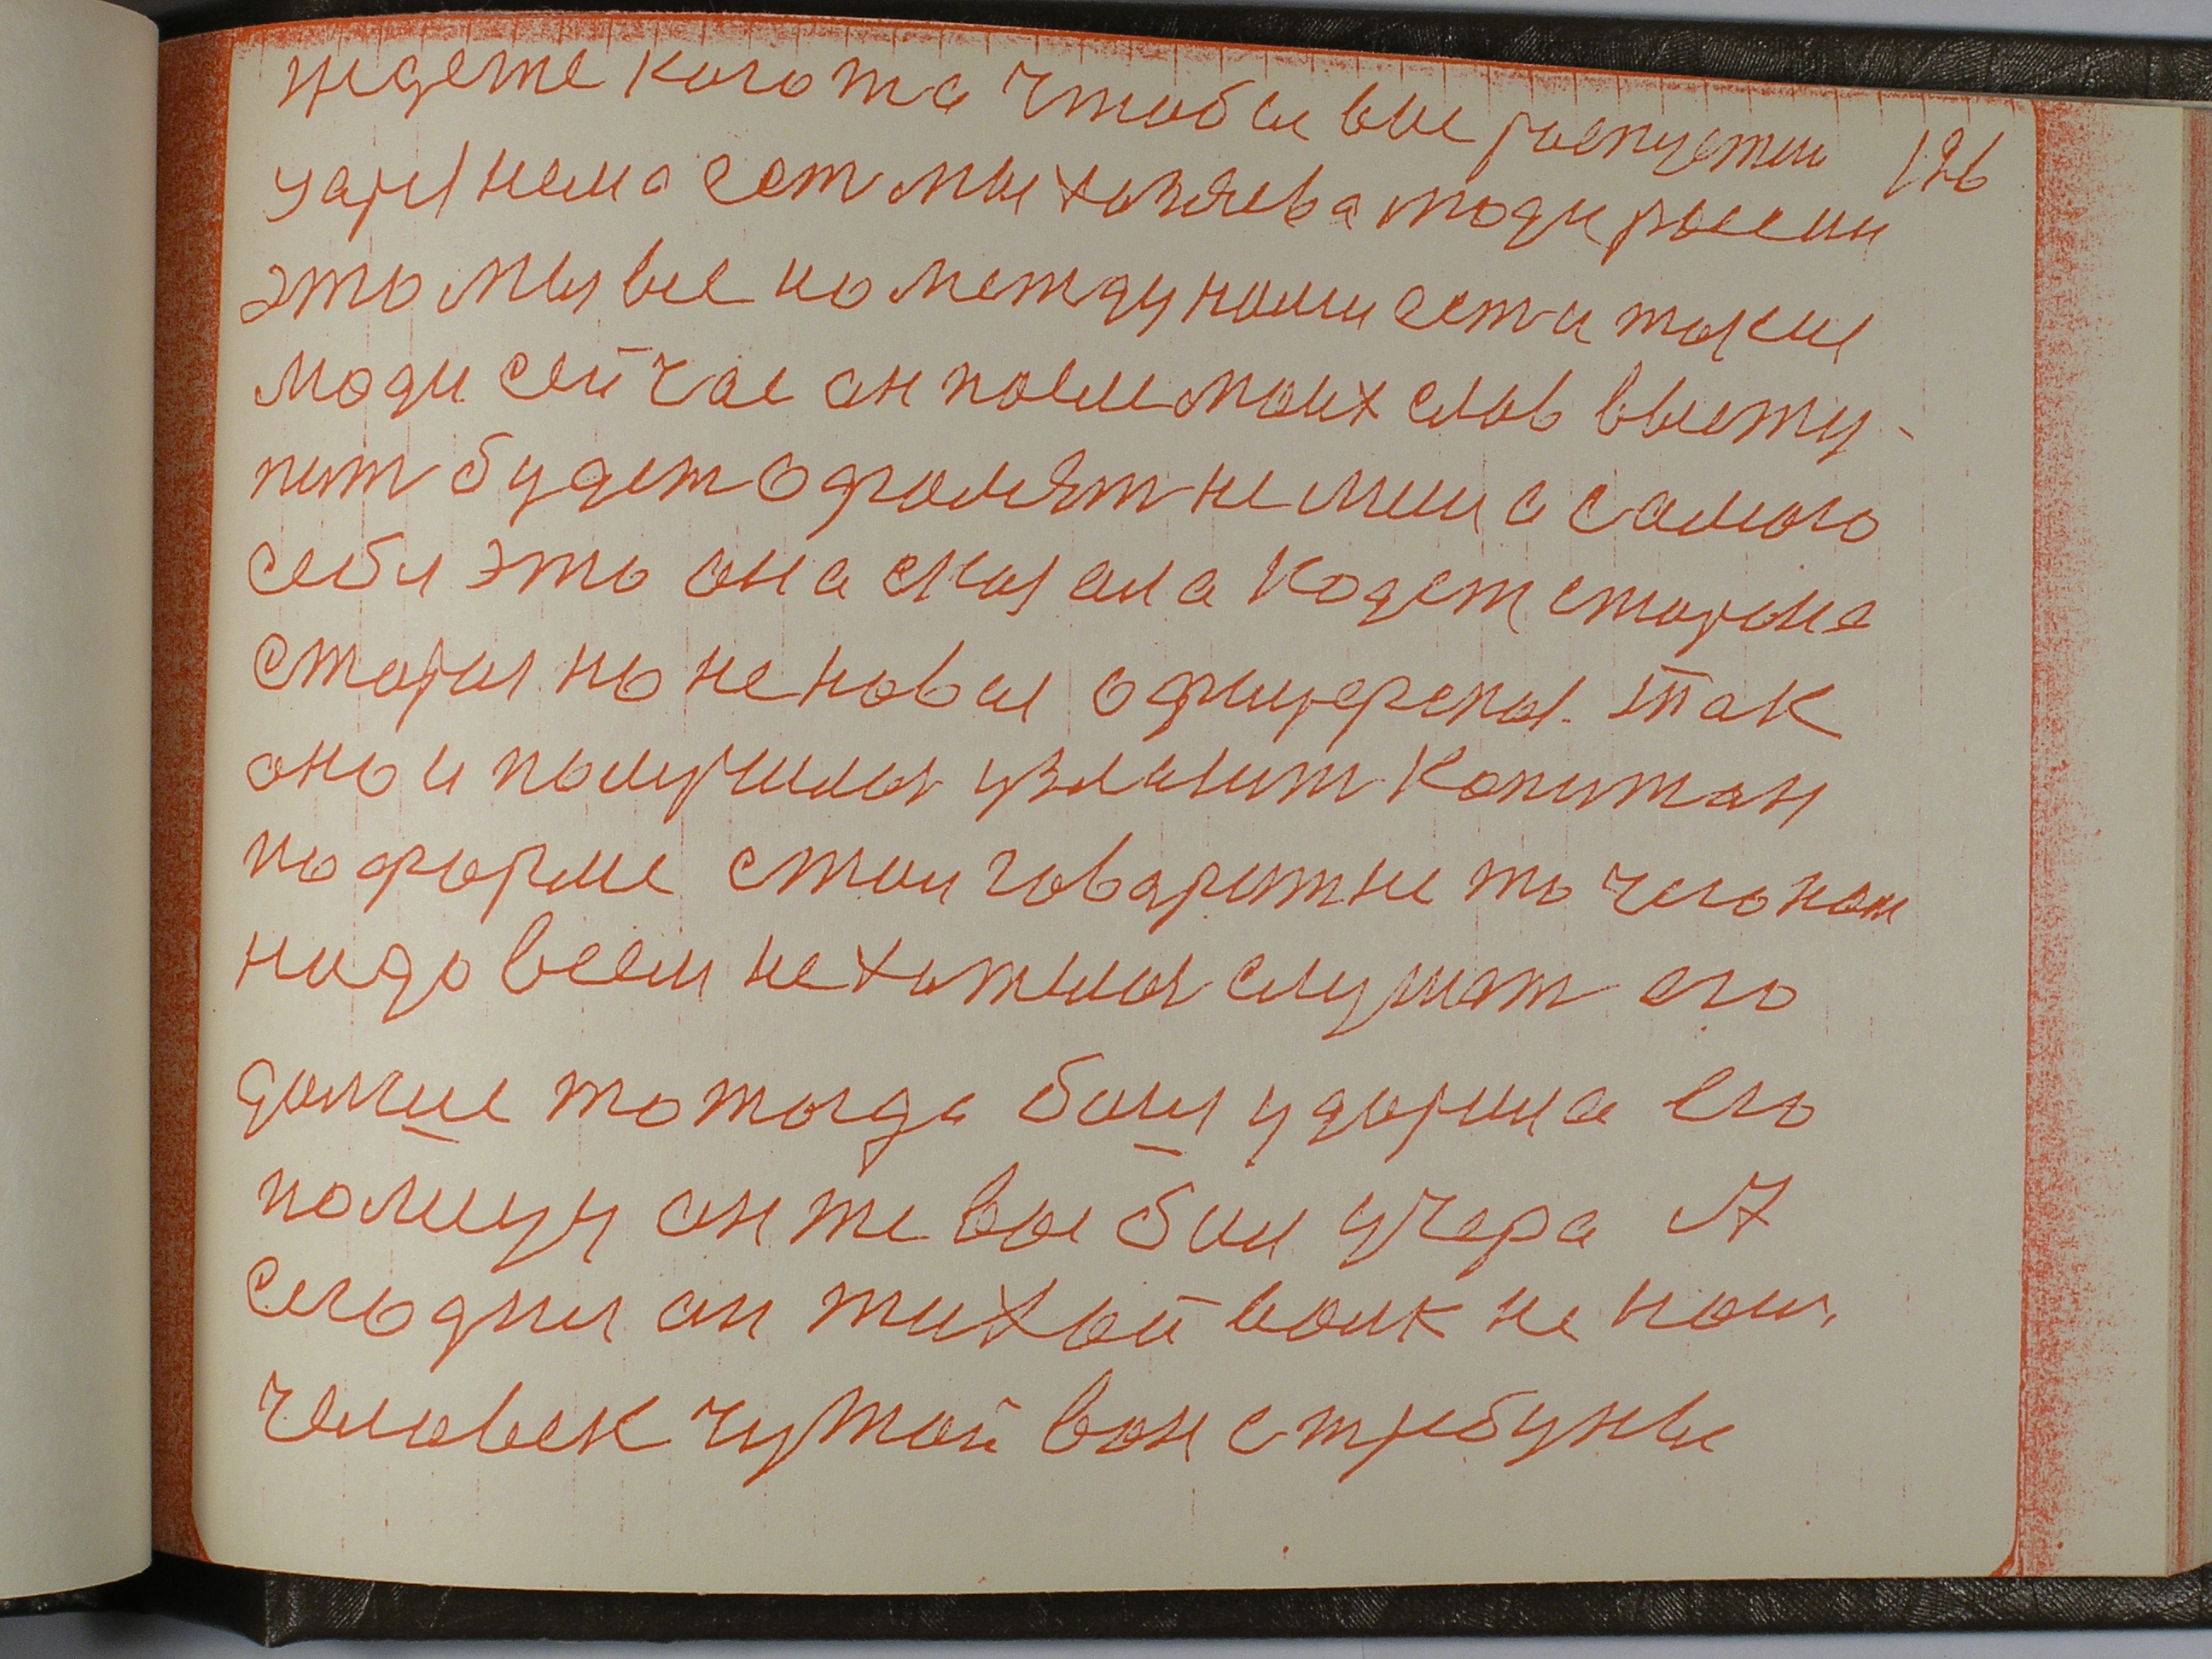 ждете кого та чтобы вы распустил 126
царя нема ест мы хозяева люди россии
это мы все но между нами ест и такие
люди сей час он после моих слов высту-
пит будет одгонят не меня а самого
себя это она сказала кодет староне
старая но не новая официерская. Так
оно и получилос узлинит капитан
по форме стои говарит не то чего нам
надо всем не хотилос слушат его
долше то тогда бои ударила его
полицу он же вы бил учера А
сегодня он тихой волк не наш.
человек чужой вон с требуны